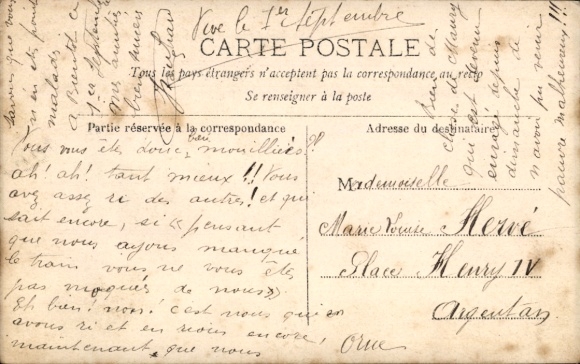 Vive le 1er Septembre
CARTE POSTALE
Tous les pays étrangers n'acceptent pas la correspondance au recto
Se renseigner à la poste
Partie réservée à la correspondance
Vous vous êtes donc bien mouillées?
ah! ah! tant mieux!! Vous
avez assez ri des autres! et qui
sait encore, si « pensant
que nous ayons manqué
le train vous ne vous êtes
pas moquées de nous »
Et bien! nous! c'est nous qui en
avons ri et en rions encore,
maintenant que nous
savons que vous
n'en êtes point
malades
à Bientôt ce
1er Septembre
mes amitiés
bien sincères
Adresse du destinataire
Mademoiselle
Marie Louise Hervé
Place Henry IV
Argentan
Orne
chasse de Maury
qui est devenu
enragé depuis
dimanche de
n'avoir pu venir
pauvre malheureux!!!